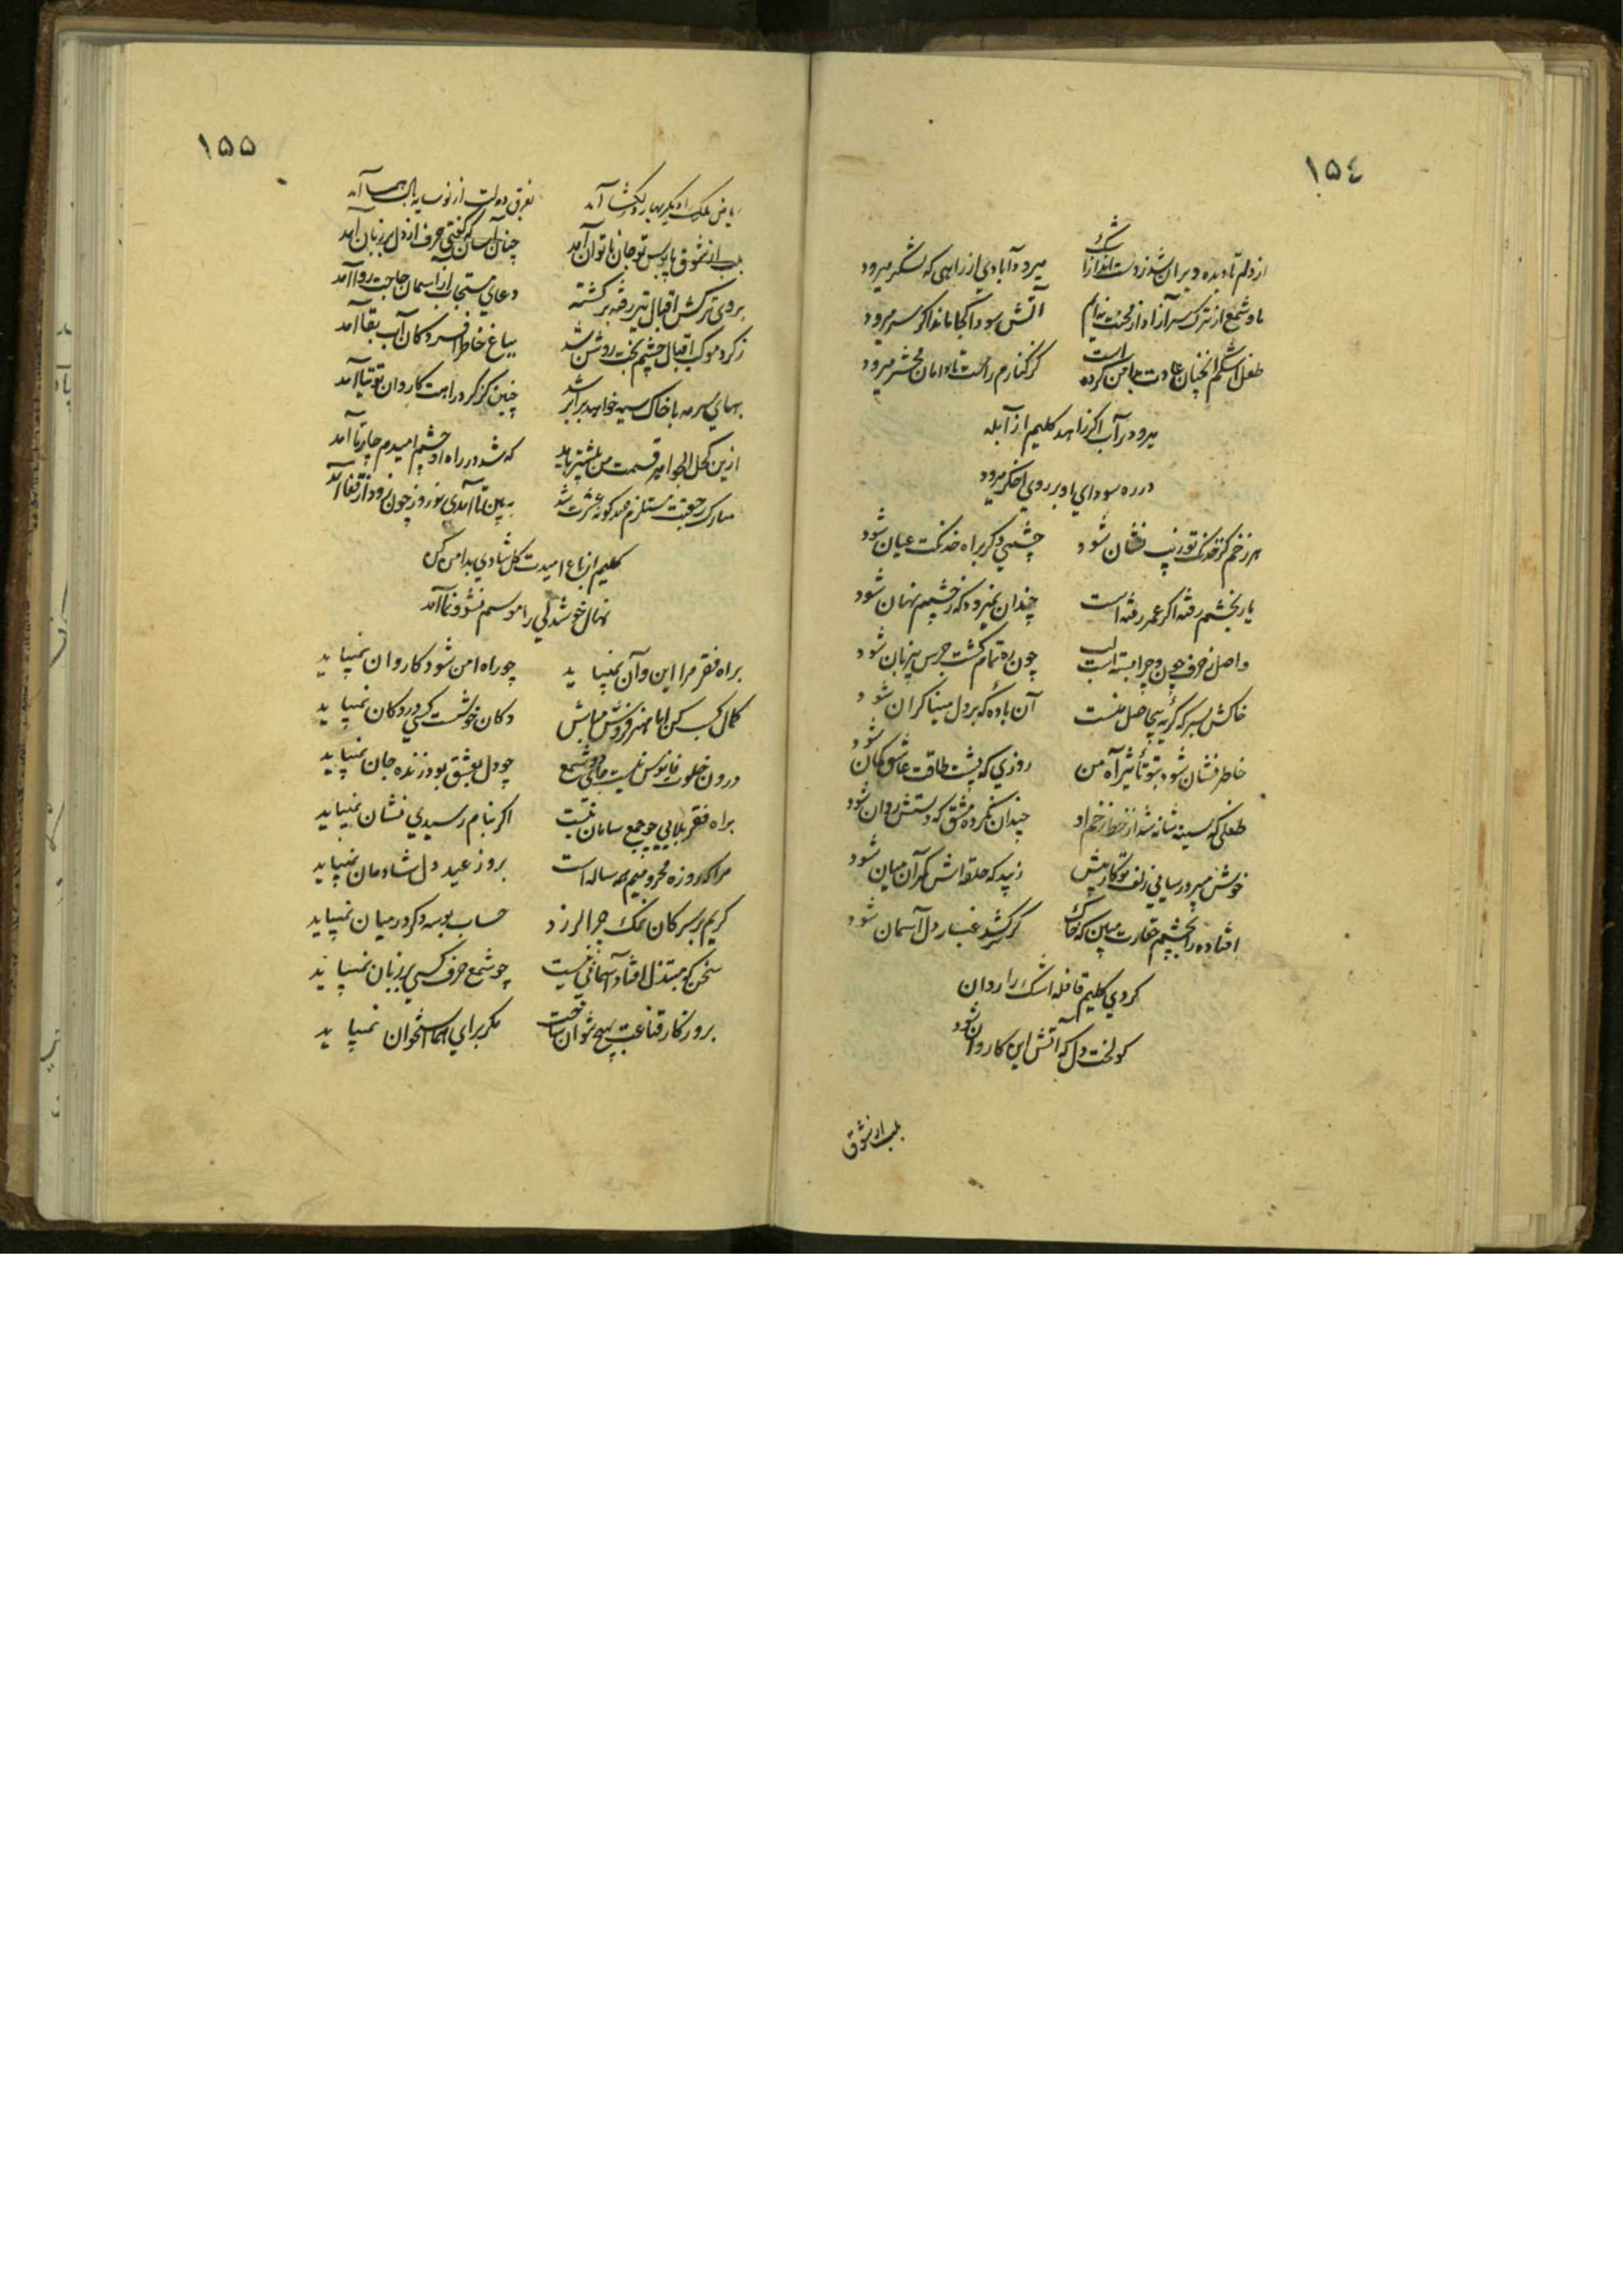 ١٥٤
از دلم تا دیده ویران شد ز دست انداز اشک
میرود آبادی از راهی که لشکر میرود
ما و شمع از ترک سر آزاد از محنت نه‌ایم
آتش سودا کجا ماند اکر سر میرود
طفل اشکم آنچنان عادت بدامن کرده است
کز کنارم راست تا دامان محشر میرود
میرود در آب اکر زاهد کلیم از آبله
در ره سودای او بر روی اخکر میرود
هر زخم کز خدنک تو زیب نشان شود
چشمی دکر براه خدنکت عیان شود
یار بخشم رفته اکر عمر رفته است
چندان نمیرود که ز چشمم نهان شود
واصل ز حرف چون و چرا بسته است لب
چون ره تمام کشت جرس بیزبان شود
خاکش بسر که کریه بیحاصل منست
آن باده که بر دل مینا کران شود
خاطر نشان شود بتو تأثیر آه من
روزی که پشت طاقت عاشق کمان شود
طفلی که سینه شانه شد از خط زخم او
چندان نکرده مشق که دستش روان شود
خوش میرود رسایی زلف تو کار پیش
زیبد که حلقه‌اش کمر آن میان شود
افتاده را بچشم حقارت مبین که خاک
کر کشد غبار دل آسمان شود
کردی کلیم قافله اشک را روان
کو لخت دل که آتش این کاروان شود
بلب از شوق
١٥٥
ریاض ملک را دیکر بهار دلکشا آمد
بفرق دولت از نو سایه بال هما آمد
بلب از شوق پابوس تو جان ناتوان آمد
چنان آسان که کفتی حرف از دل بر زبان آمد
بروی ترکش اقبال تیر رفته برکشته
دعای مستجاب از آسمان حاجت روا آمد
ز کرد موکب اقبال چشم بخت روشن شد
بباغ خاطر افسردکان آب بقا آمد
بهای سرمه با خاک سیه خواهد برابر شد
چنین کز کرد راهت کاروان توتیا آمد
ازین کحل الجواهر قسمت من بیشتر باید
که شد در راه او چشم امیدم چار تا آمد
مبارک مقدمت مستلزم صد کونه عشرت شد
به بین تا آمدی نوروز چون زود از قفا آمد
کلیم از باغ امیدت کل شادی بدامن کن
نهال خوشدلی را موسم نشو و نما آمد
براه فقر مرا این و آن نمیباید
چو راه امن شود کاروان نمیباید
کمال کسب کن اما هنر فروش مباش
دکان خوشست کسی در دکان نمیباید
درون خلوت فانوس نیست جای دو شمع
چو دل بعشق بود زنده جان نمیباید
براه فقر بلایی چو جمع سامان نیست
اکر بنام رسیدی نشان نمیباید
مرا که روزه محرومیم همه ساله است
بروز عید دل شادمان نمیباید
کریم بر سر کان نمک چرا لرزد
حساب بوسه دکر در میان نمیباید
سخن که مبتذل افتاد آسمانی نیست
چو شمع حرف کسی بر زبان نمیباید
بروزکار قناعت بهیچ نتوان ساخت
مکر برای هما استخوان نمیباید